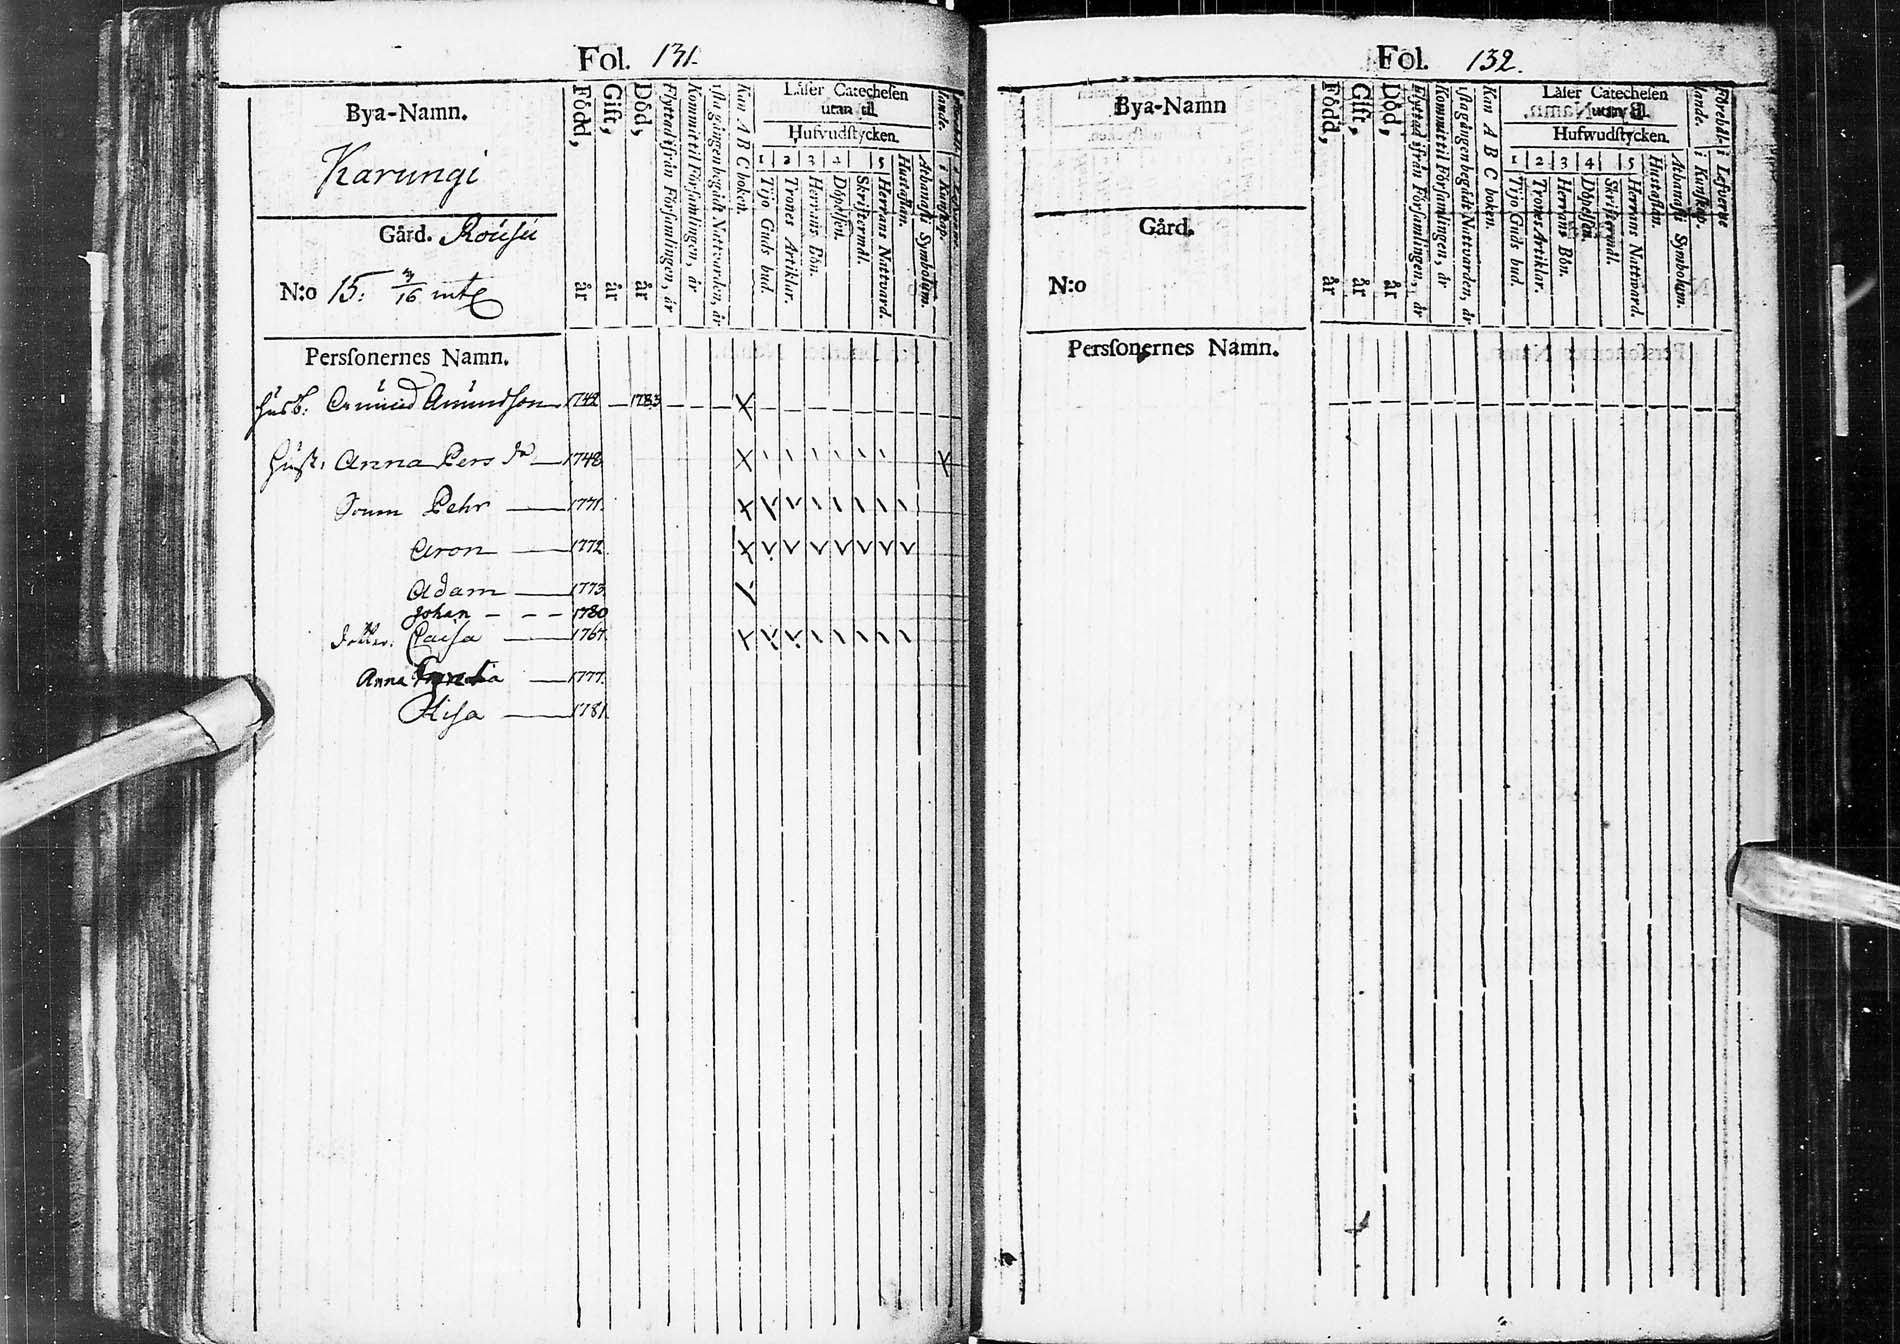 Fol. 131.
Bya-Namn.
Karungi
Gård. Rousu
N:o 15. 3/16 mtl
Född, år
Gift, år
Död, år
Flyttad ifrån Församlingen, år
Kommit til Församlingen, år
1sta gången begådt Nattvarden, år
Kan A B C boken.
Läser Catechesen
utan til.
Hufvudstycken.
1 2 3 4 5
Tijo Guds bud.
Trones Artiklar.
Herrans Bön.
Döpelsen.
Skriftermål.
Herrans Nattvard.
Hustaflan.
Athanasii Symbolum.
Personernes Namn.
Husb. Amund Amundson 1742 1783
Hust. Anna Pers dr 1748
Sonen Pehr 1771.
Aron 1772.
Adam 1773
Johan 1780
dotter. Caisa 1767.
Anna 1777.
Lisa 1781
Fol. 132.
Bya-Namn
Gård.
N:o
Född, år
Gift, år
Död, år
Flyttad ifrån Församlingen, år
Kommit til Församlingen, år
1sta gången begådt Nattvarden, år
Kan A B C boken.
Läser Catechesen
utan til.
Hufwudstycken.
1 2 3 4 5
Tijo Guds bud.
Trones Artiklar.
Herrans Bön.
Döpelsen.
Skriftermål.
Herrans Nattward.
Hustaflan.
Athanasii Symbolum.
Förehållande. i Kunskap.
i Lefwerne
Personernes Namn.